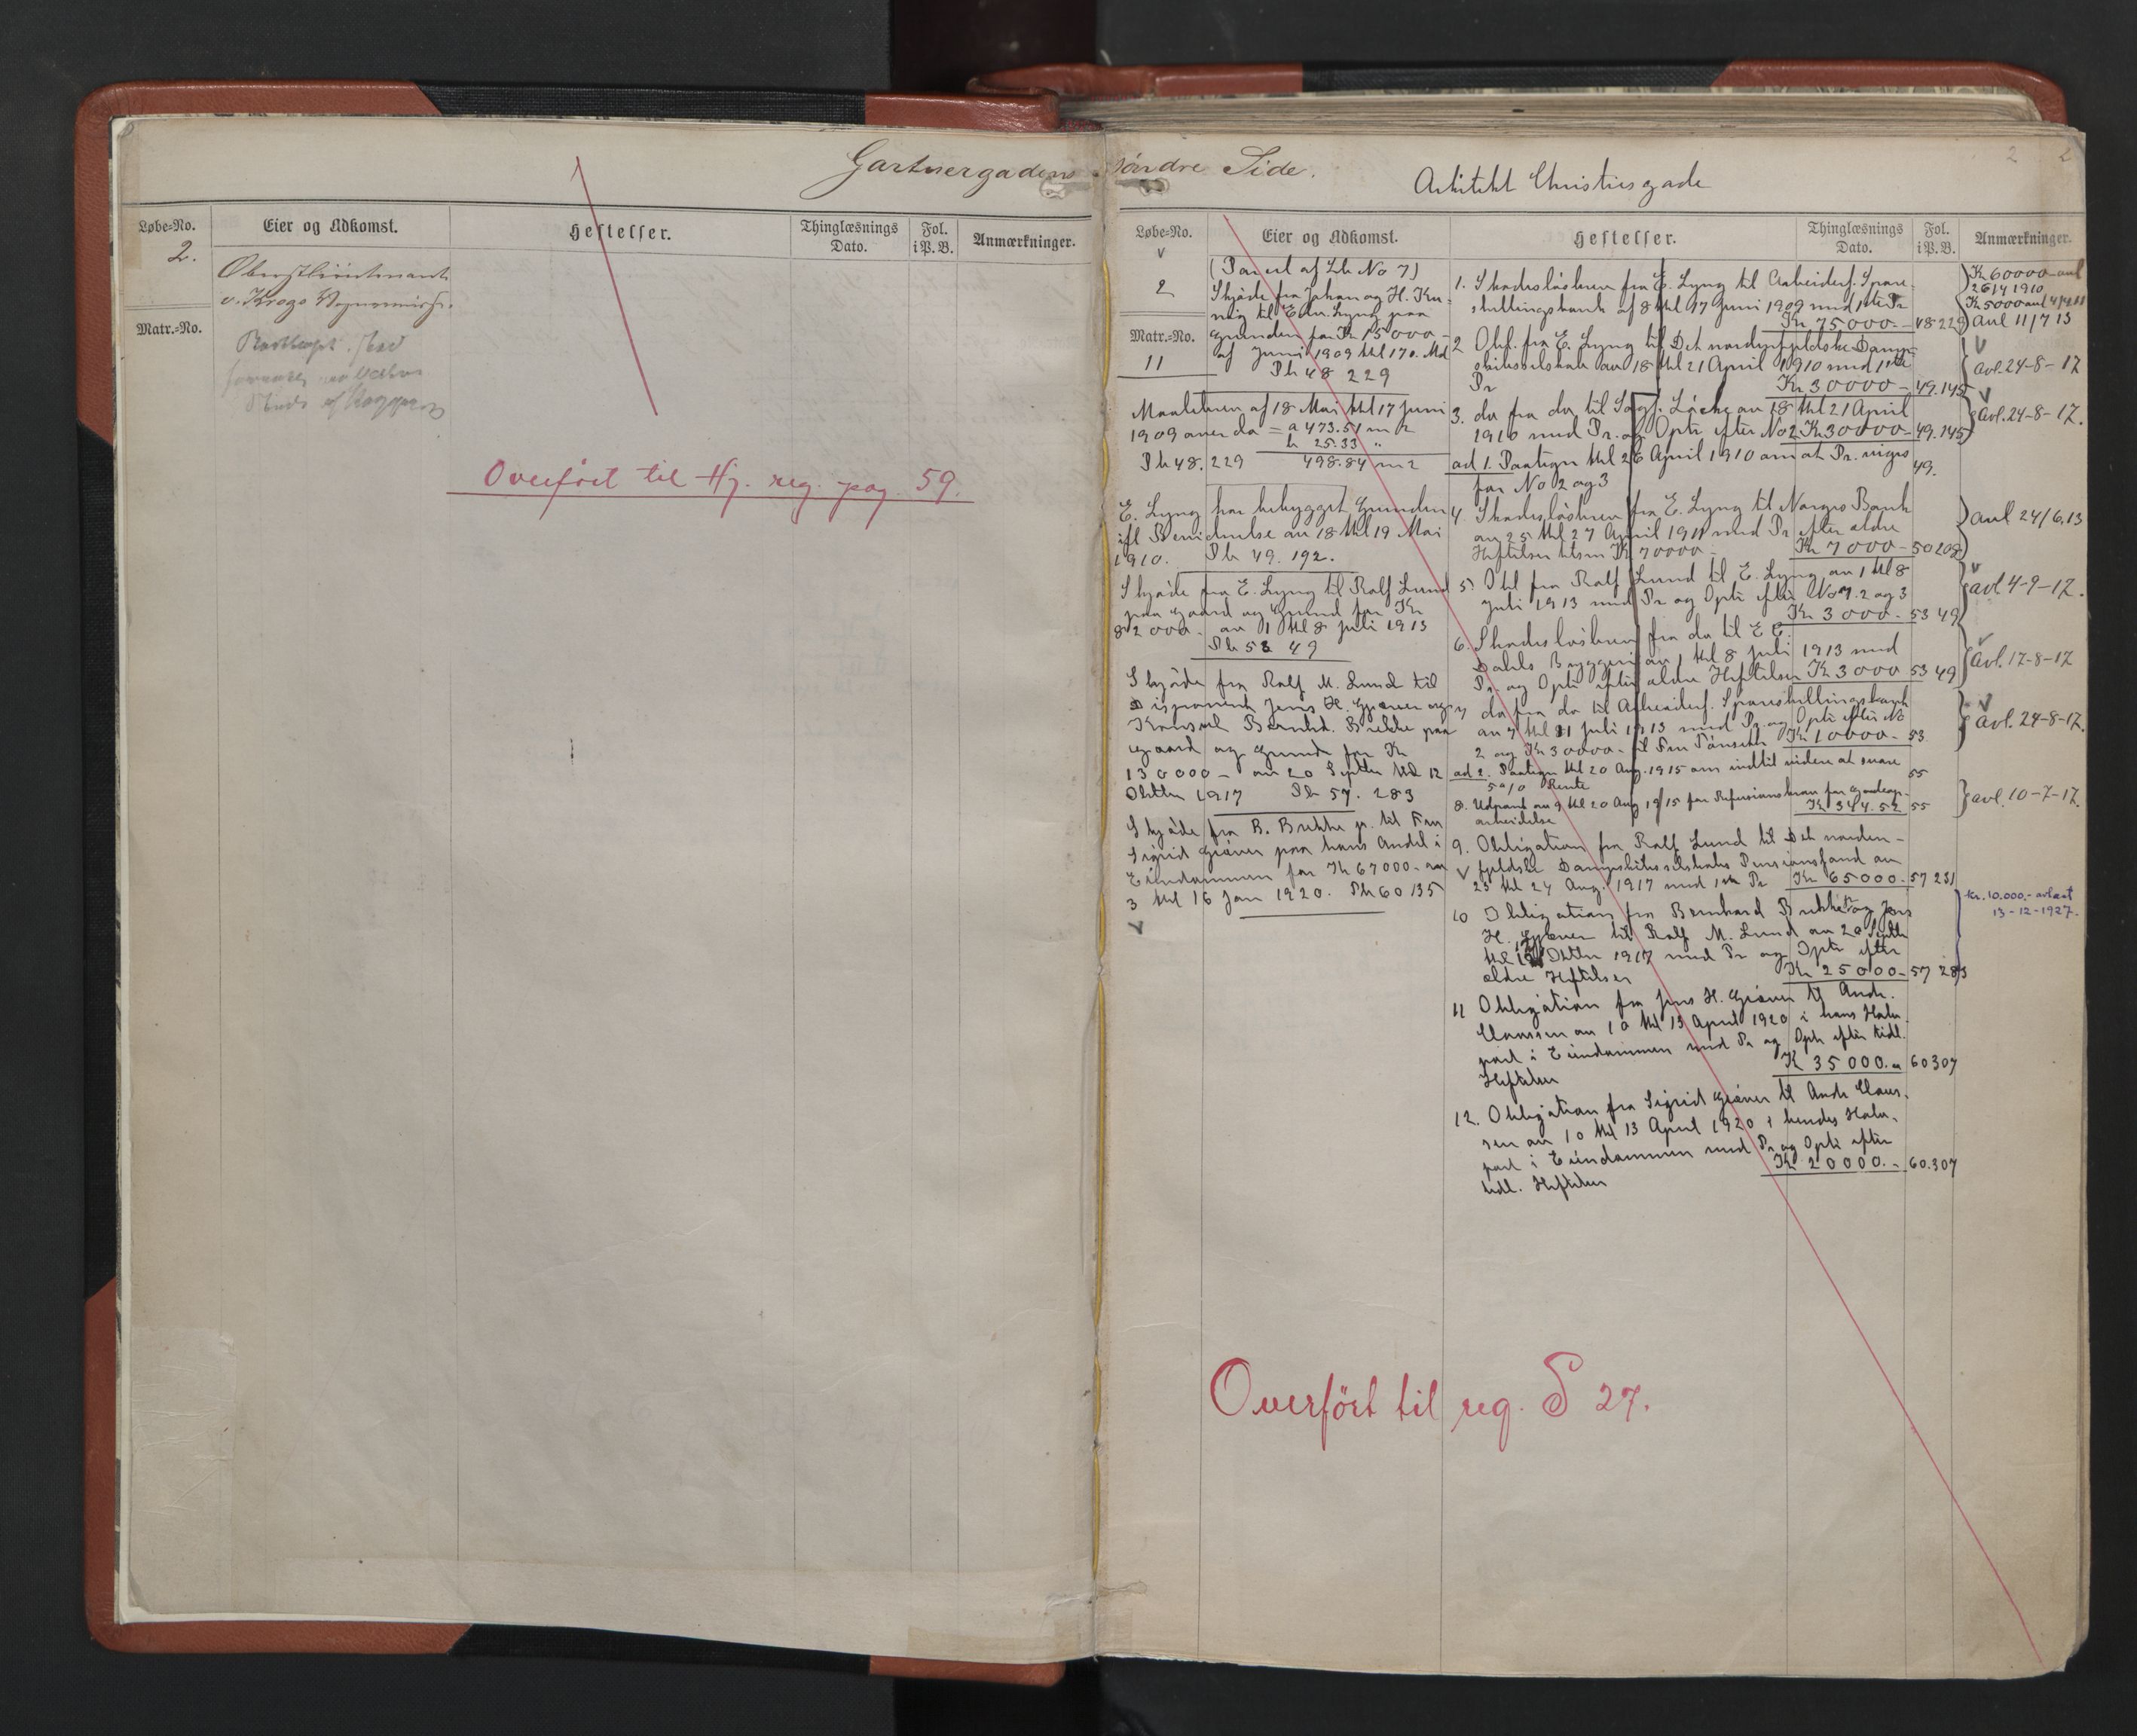 Gartnergadens söndre Side.
Arkitekt Christiesgade
2 2
Løbe-No. Eier og Adkomst. Heftelser. Thinglæsnings Dato. Fol. i P. B. Anmærkninger.
2.
Oberstlöitenant
v. Krogs
Matr.-No.
Overført til Hj. reg. pag. 59.
Løbe-No. Eier og Adkomst. Heftelser. Thinglæsnings Dato. Fol. i P. B. Anmærkninger.
2
Matr.-No.
11
(Parcel af Lb No 7)
Skjöde fra Johan og H. Ku-
nig til Edv. Lyng paa
grunden for Kr 15000-
af Juni 1909 tkl 170. Md
Pb 48 229
Maalebrev af 18 Mai tkl 17 Juni
1909 = a 473.51 m2
b 25.33 "
Pb 48. 229 498.84 m2
E. Lyng har bebygget Grunden
ifl av 18 tkl 19 Mai
1910. Pb 49. 192.
Skjöde fra E. Lyng til Rolf Lund
paa Gaard og Grund for Kr
82000- av 1 tkl 8 juli 1913
Pb 53 49
Skjöde fra Rolf M. Lund til
Disponent Jens H. Giæver og
Konsul Bernh. Brekke paa
gaard og grund for Kr
130000- av 20 Septbr tkl 12
Oktbr 1917 Pb 57. 283
Skjöde fra B. Brekke jr. til Fru
Sigrid Giæver paa hans Andel i
Eiendommen for Kr 67000- av
3 tkl 16 Jan 1920. Pb 60 135
1. Skadeslösbrev fra E. Lyng til Arbeiderf. Spare-
skillingsbank af 8 tkl 17 Juni 1909 med 1ste Pr
Kr 75000.- 48 229
2 Obl. fra E. Lyng til Det nordenfjeldske Damp-
skibsselskab av 18 tkl 21 April 1910 med 1ste
Pr Kr 30000- 49.145
3. do fra do til Sagf. Löche av 18 tkl 21 April
1910 med Pr. og Optr efter No 2 Kr 30000- 49.145
ad 1. Paategn tkl 26 April 1910 om at Pr. viges
for No 2 og 3 49.
4. Skadeslösbrev fra E. Lyng til Norges Bank
av 25 tkl 27 April 1911 med Pr efter ældre
Heftelser tilsm Kr 70000- Kr 7000- 50208
5) Obl fra Rolf Lund til E. Lyng av 1 tkl 8
juli 1913 med Pr og Optr efter No 1. 2 og 3
Kr 3000- 53 49
6. Skadeslösbrev fra do til E C
Dahls Bryggeri av 1 tkl 8 juli 1913 med
Pr. og Optr efter ældre Heftelser Kr 3000 53 49
7 do fra do til Arbeiderf. Spareskillingsbank
av 7 tkl 11 juli 1913 med Pr. og Optr efter No
2 og Kr 30000- til Fru Kr 10000- 53.
ad 2. Paategn tkl 20 Aug. 1915 om indtil videre at svare
5% Rente 55
8. Udpant av 9 tkl 20 Aug 1915 for Refusionskrav for
arbeidelse Kr 344.52 55
9. Obligation fra Rolf Lund til Det norden-
fjeldske Dampskibsselskabs Pensionsfond av
23 tkl 24 Aug. 1917 med 1ste Pr Kr 65000- 57 231
10 Obligation fra Bernhard Brekke og Jens
H. Giæver til Rolf M. Lund av 20 Septbr
tkl 12 Oktbr 1917 med Pr og Optr efter
ældre Heftelser Kr 25000- 57 283
11 Obligation fra Jens H. Giæver til Andr.
Claussen av 10 tkl 13 April 1920 i hans Halv-
part i Eiendommen med Pr og Optr efter tidl.
Heftelser Kr 35000.- 60307
12. Obligation fra Sigrid Giæver til Andr Claus-
sen av 10 tkl 13 April 1920 i hendes Halv-
part i Eiendommen med Pr og Optr efter
tidl. Heftelser Kr 20000.- 60.307
Kr 60000- avl
26/4 1910
Kr 5000 avl
Avl 11/7 13
Avl. 24-8-17
Avl. 24-8-17.
Avl 24/6.13
avl 4-9-17.
Avl. 17-8-17
Avl. 24-8-17.
avl. 10-7-17.
Kr. 10.000,- avlæst
13-12-1927.
Overfört til reg. S 27.